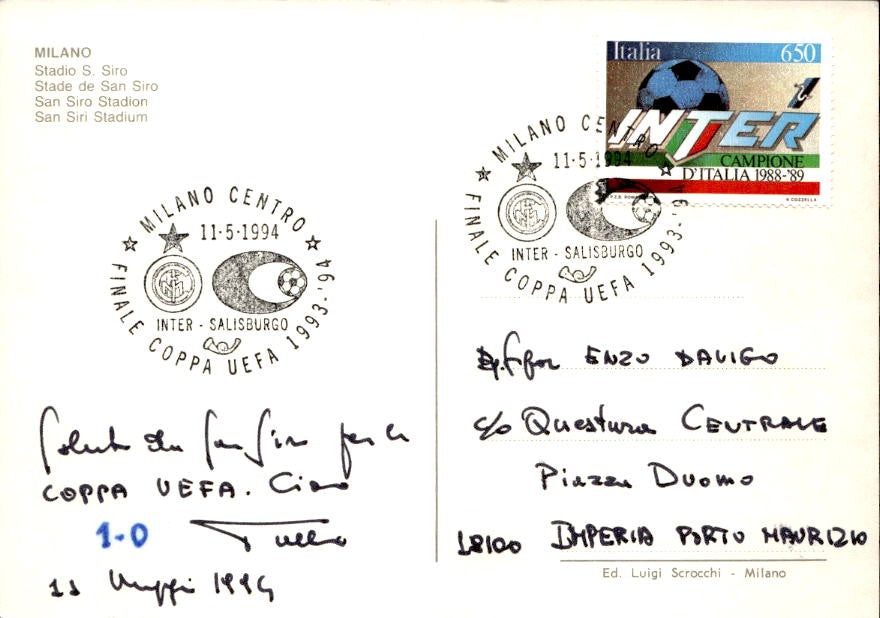 MILANO
Stadio S. Siro
Stade de San Siro
San Siro Stadion
San Siri Stadium
Italia 650
INTER
CAMPIONE
D'ITALIA 1988-'89
I.P.Z.S. ROMA
MILANO CENTRO
11-5-1994
INTER - SALISBURGO
FINALE COPPA UEFA 1993-'94
MILANO CENTRO
11-5-1994
INTER - SALISBURGO
FINALE COPPA UEFA 1993-'94
Saluti da San Siro per la
COPPA UEFA. Ciao
1-0
11 Maggio 1994
ENZO DAVIGO
c/o Questura CENTRALE
Piazza Duomo
18100 IMPERIA PORTO MAURIZIO
Ed. Luigi Scrocchi - Milano